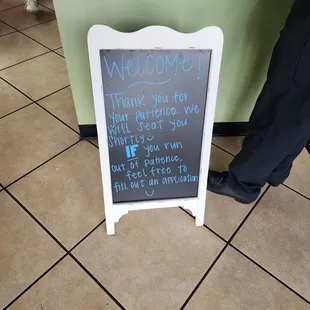 Welcome!
Thank you for
your patience. We
will seat you
shortly.
IF you run
out of patience,
feel free to
fill out an application